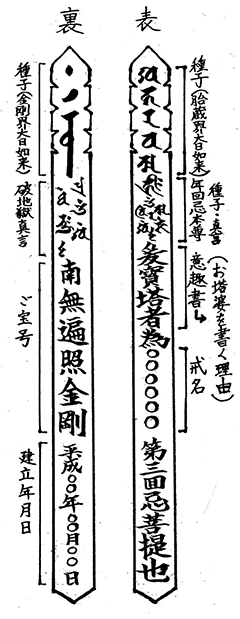 表
種子・真言
(お塔婆を書く理由)
種子(胎蔵界大日如来)
年回忌本尊
意趣書↳
戒名
爰寶塔者為○○○○○○ 第三回忌菩提也
裏
南無遍照金剛 平成○○年○○月○○日
種子(金剛界大日如来)
破地獄真言
ご宝号
建立年月日